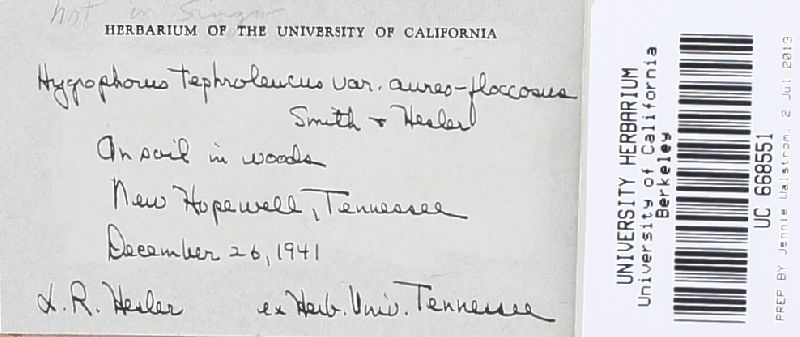 not in Singer
HERBARIUM OF THE UNIVERSITY OF CALIFORNIA
Hygrophorus tephroleucus var. aureo-floccosus
Smith & Hesler
On soil in woods
New Hopewell, Tennessee
December 26, 1941
L. R. Hesler ex Herb. Univ. Tennessee
UNIVERSITY HERBARIUM
University of California
Berkeley
UC 668551
PREP BY Jennie Walstrom, 2 Jul 2013